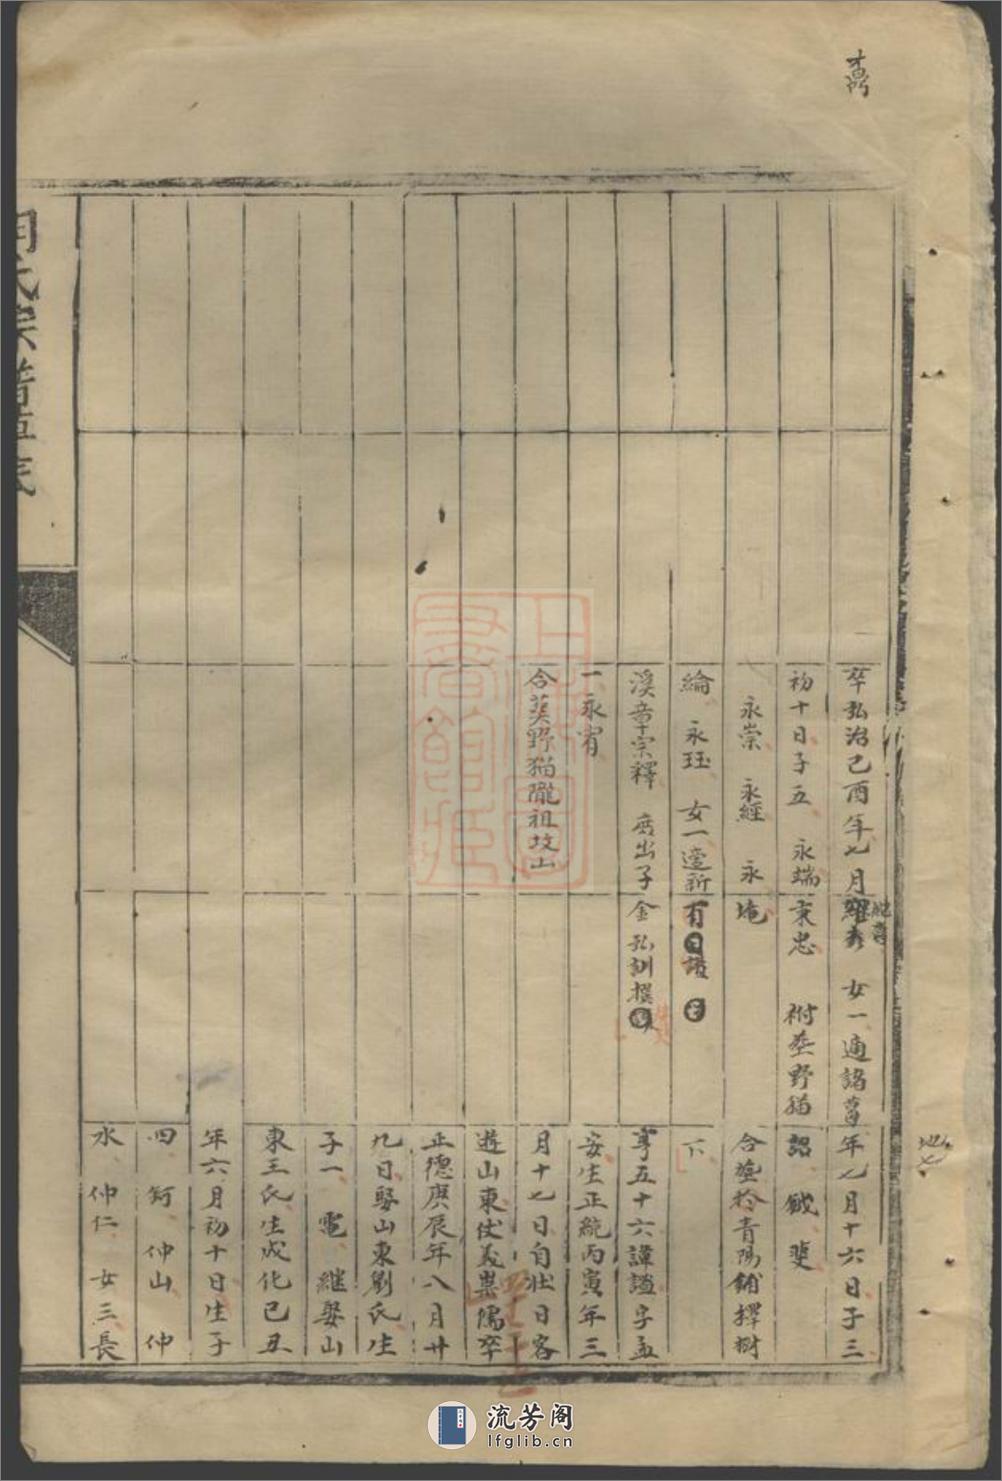 卒弘治己酉年七月
初十日子五 永端
永崇 永經 永
綸 永珏 女一適新
溪章宗釋 庶出子
一永宥
合葬野猫隴祖坟山
女一適諸葛
秉忠 祔塟野猫
埯
有
金弘訓撰
年七月十六日子三
詔 鉞 斐
合塟於青陽鋪擇樹
下
亨五十六諱謐字孟
安生正統丙寅年三
月十七日自壯日客
遊山東仗義業儒卒
正德庚辰年八月廿
九日娶山東劉氏生
子一 電 継娶山
東王氏生成化己丑
年六月初十日生子
四 鈳 仲山 仲
水 仲仁 女三長
上海圖書館藏
流芳阁
lfglib.cn